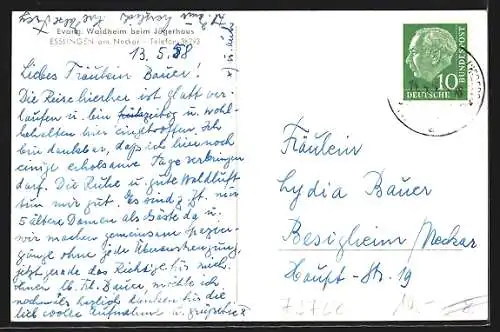 Evang. Waldheim beim Jägerhaus
ESSLINGEN am Neckar - Telefon 36793
13.5.58
Liebes Fräulein Bauer!
Die Reise hierher ist glatt ver-
laufen u. bin u. wohl-
behalten hier eingetroffen. Ich
bin dankbar, dass ich hier noch
einige erholsame Tage verbringen
darf. Die Ruhe u. gute Waldluft
tun mir gut. Es sind z. Zt. nur
5 ältere Damen als Gäste da u.
wir machen gemeinsame Spazier-
gänge ohne jede Überanstrengung,
jetzt gerade das Richtige für mich.
Ihnen lb. Frl. Bauer, möchte ich
nochmals herzlich danken für die
liebevolle Aufnahme u. grüße Sie
DEUTSCHE BUNDESPOST
10
Fräulein
Lydia Bauer
Besigheim/Neckar
Haupt-Str. 19